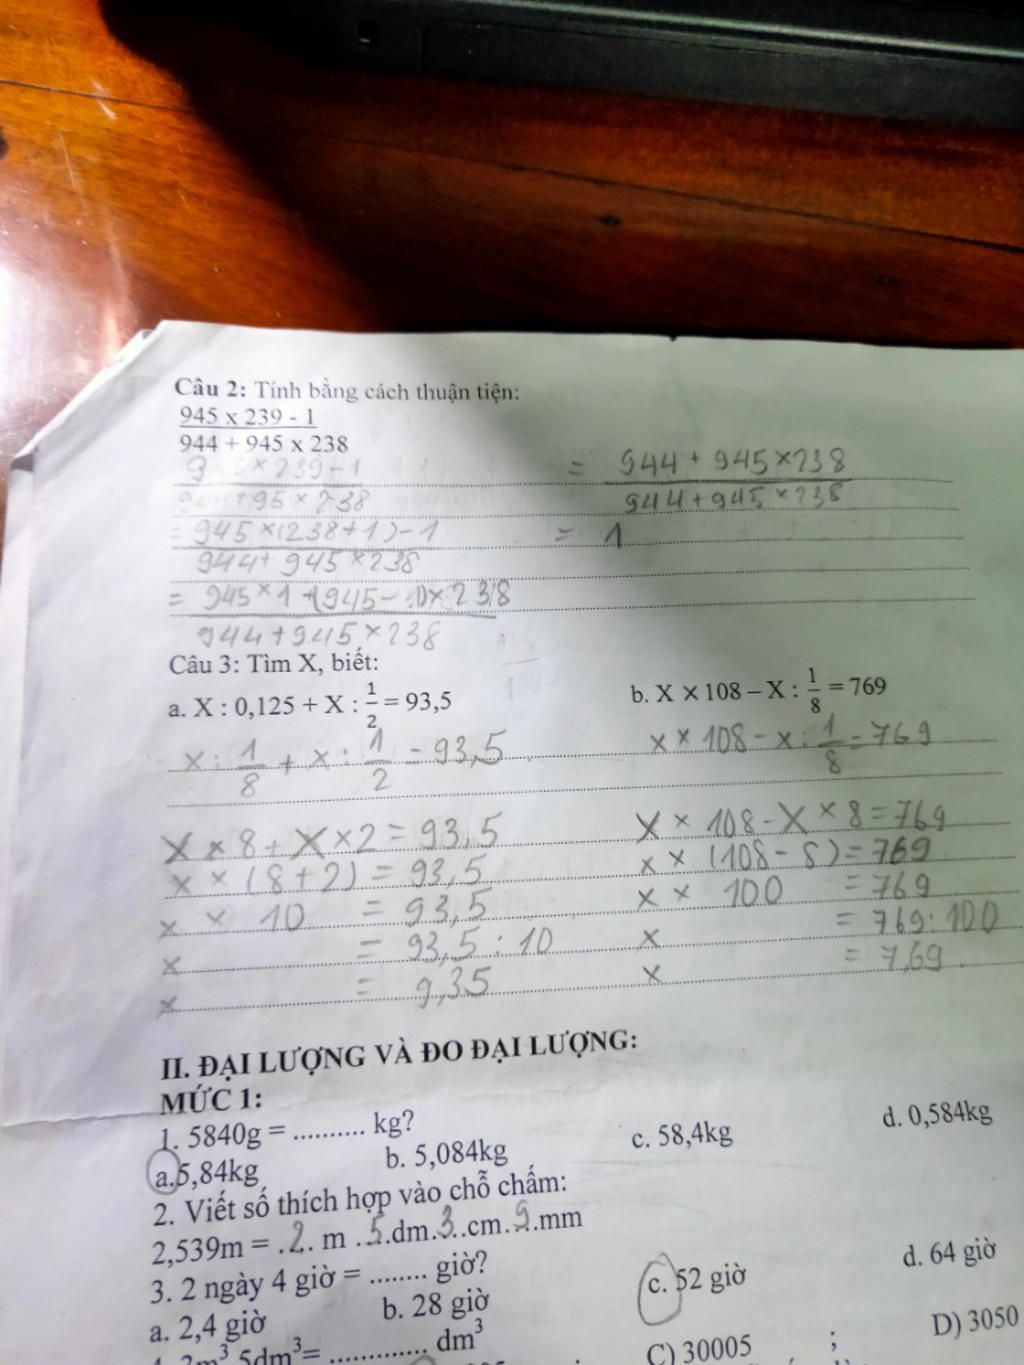 Câu 2: Tính bằng cách thuận tiện:
945 x 239 - 1
944 + 945 x 238
945 × 239 - 1
944 + 95 × 238
= 945 × (238 + 1) - 1
944 + 945 × 238
= 945 × 1 + (945 - 1) × 238
944 + 945 × 238
= 944 + 945 × 238
944 + 945 × 238
= 1
Câu 3: Tìm X, biết:
a. X : 0,125 + X : 1/2 = 93,5
x : 1/8 + x : 1/2 = 93,5
X × 8 + X × 2 = 93,5
x × (8 + 2) = 93,5
x × 10 = 93,5
x = 93,5 : 10
x = 9,35
b. X × 108 – X : 1/8 = 769
x × 108 - x : 1/8 = 769
X × 108 - X × 8 = 769
x × (108 - 8) = 769
x × 100 = 769
x = 769 : 100
x = 7,69
II. ĐẠI LƯỢNG VÀ ĐO ĐẠI LƯỢNG:
MỨC 1:
1. 5840g = .......... kg?
a. 5,84kg b. 5,084kg c. 58,4kg d. 0,584kg
2. Viết số thích hợp vào chỗ chấm:
2,539m = .2. m .5.dm.3..cm.9..mm
3. 2 ngày 4 giờ = ........ giờ?
a. 2,4 giờ b. 28 giờ c. 52 giờ d. 64 giờ
5dm³= ............. dm³
C) 30005 ; D) 3050